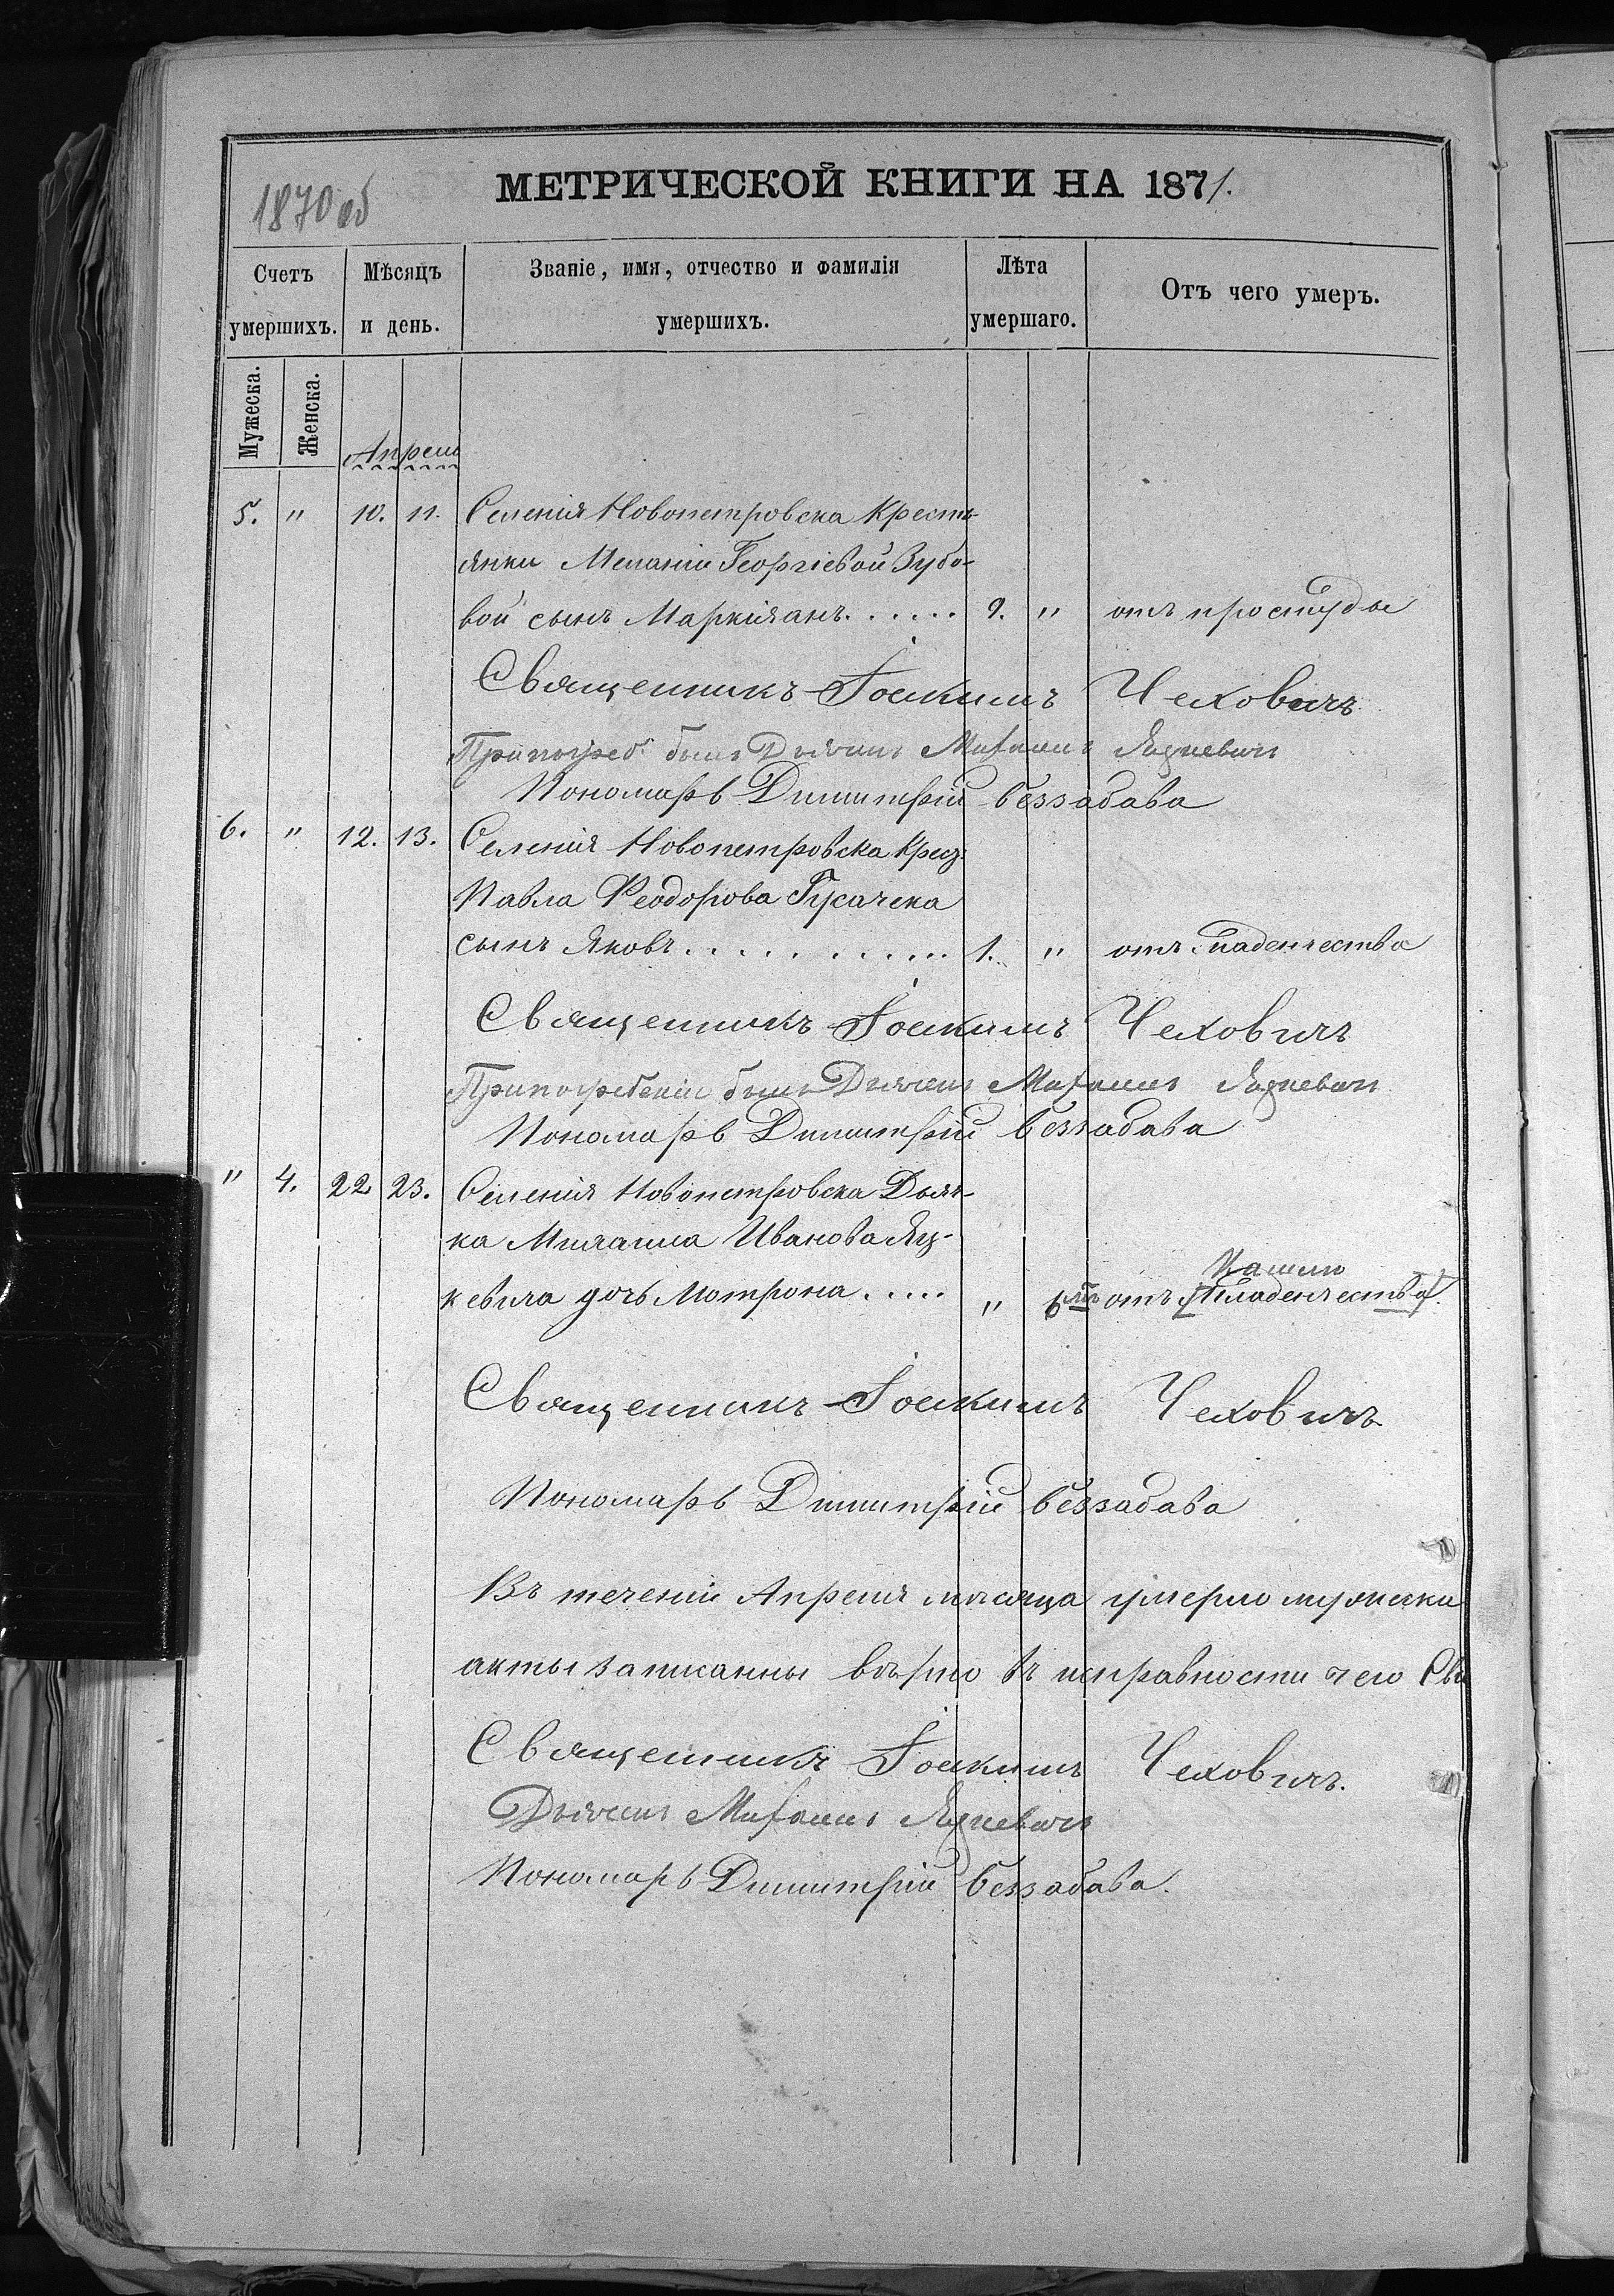 1870 об
МЕТРИЧЕСКОЙ КНИГИ НА 1871.
Счетъ умершихъ.
Мѣсяцъ и день.
Званіе, имя, отчество и фамилія умершихъ.
Лѣта умершаго.
Отъ чего умеръ.
Мужеска.
Женска.
Апрель
5. " 10. 11. Селенія Новопетровска Кресть-
янки Меланіи Георгіевой Зубо-
вой сынъ Маркіянъ. . . . . . 9. " отъ простуды
Священникъ Іоакимъ Чеховичъ
Припогреб. былъ Дьячокъ Михаилъ Яцкевичъ
Пономарь Димитрій Беззабава
6. " 12. 13. Селенія Новопетровска Крес:
Павла Феодорова Гусачека
сынъ Яковъ. . . . . . . . . . . 1. " отъ младенчества
Священникъ Іоакимъ Чеховичъ
Припогребеніи былъ Дьячокъ Михаилъ Яцкевичъ
Пономарь Димитрій Беззабава
" 4. 22 23. Селенія Новопетровска Дьяч-
ка Михаила Иванова Яц-
Кашлю
кевича дочь Мотрона . . . . . " 6 отъ [Младенчества].
Священникъ Іоакимъ Чеховичъ
Пономарь Димитрій Беззабава
Въ теченіи Апреля мѣсяца умерло мужеска
акты записанны вѣрно въ исправности чего Сви
Священникъ Іоакимъ Чеховичъ.
Дьячокъ Михаилъ Яцкевичъ
Пономарь Димитрій Беззабава.